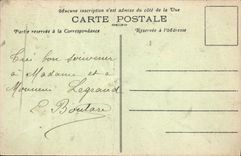 Aucune inscription n'est admise du côté de la Vue
CARTE POSTALE
Partie réservée à la Correspondance
Réservée à l'Adresse
bon souvenir
à Madame et à
Monsieur Legrand
E. Boutare